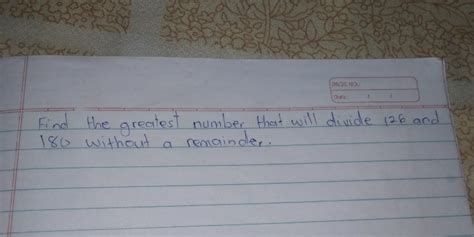 PAGE NO.
Date: / /
Find the greatest number that will divide 126 and
180 without a remainder.